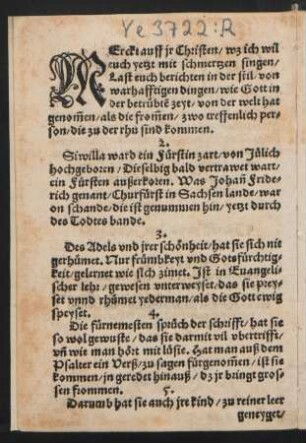 Ye 3722:R
MErckt auff jr Christen / wz ich wil
euch yetzt mit schmertzen singen /
Last euch berichten in der stil. von
warhafftigen dingen / wie Gott in
der betrübtẽ zeyt / von der welt hat
genom̃en / als die from̃en / zwo treffenlich per-
son / die zu der rhu sind kommen.
2.
Siwilla ward ein Fürstin zart / von Jülich
hochgeboren / Dieselbig bald vertrawet wart /
ein Fürsten außerkoren. Was Johañ Fride-
rich genant / Churfürst in Sachsen lande / war
on schande / die ist genummen hin / yetzt durch
des Todtes bande.
3.
Des Adels vnd jrer schönheit / hat sie sich nit
gerhümet. Nur frümbkeyt vnd Gotsfürchtig-
keit / gelernet wie sich zimet. Ist in Euangeli-
scher lehr / gewesen vnterweyset / das sie prey-
set vnnd rhümet yederman / als die Gott ewig
speyset.
4.
Die fürnemesten sprüch der schrifft / hat sie
so wol gewuste / das sie darmit vil vbertrifft /
vñ wie man hört mit lüste. Hat man auß dem
Psalter ein Verß / zu sagen fürgenom̃en / ist sie
kommen / jn geredet hinauß / dz jr bringt grossen
frommen.
5.
Darumb hat sie auch jre kind / zu reiner leer
geneyget /